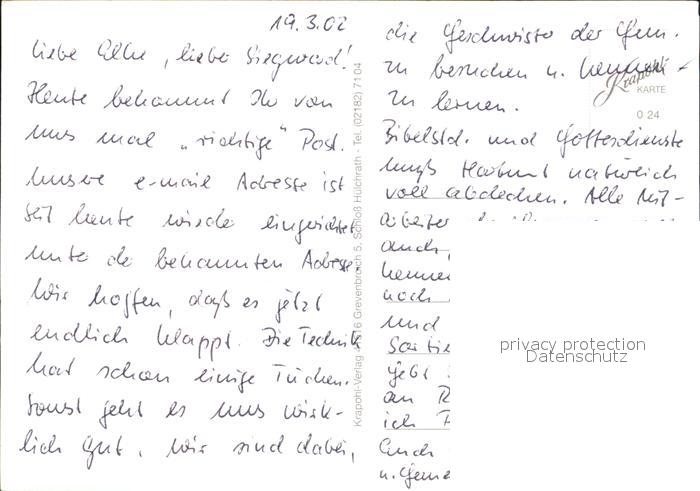 19.3.02
liebe Elke, lieber Siegward!
Heute bekommt Ihr von
uns mal „richtige" Post.
Unsere e-mail Adresse ist
seit heute wieder eingerichtet
unter der bekannten Adresse.
Wir hoffen, daß es jetzt
endlich klappt. Die Technik
hat schon einige Tücken.
Sonst geht es uns wirk-
lich gut. Wir sind dabei,
die Geschwister der Gem.
zu besuchen u. kennen
zu lernen.
Bibelstd. und Gottesdienste
muß Hartmut natürlich
voll abdecken. Alle Mit-
arbeiter
auch,
kennen
noch
und
jetzt
an
ich
Euch
u. Geme
Krapohl
KARTE
0 24
Krapohl-Verlag 41516 Grevenbroich 5, Schloß Hülchrath - Tel. (02182) 7104
privacy protection
Datenschutz